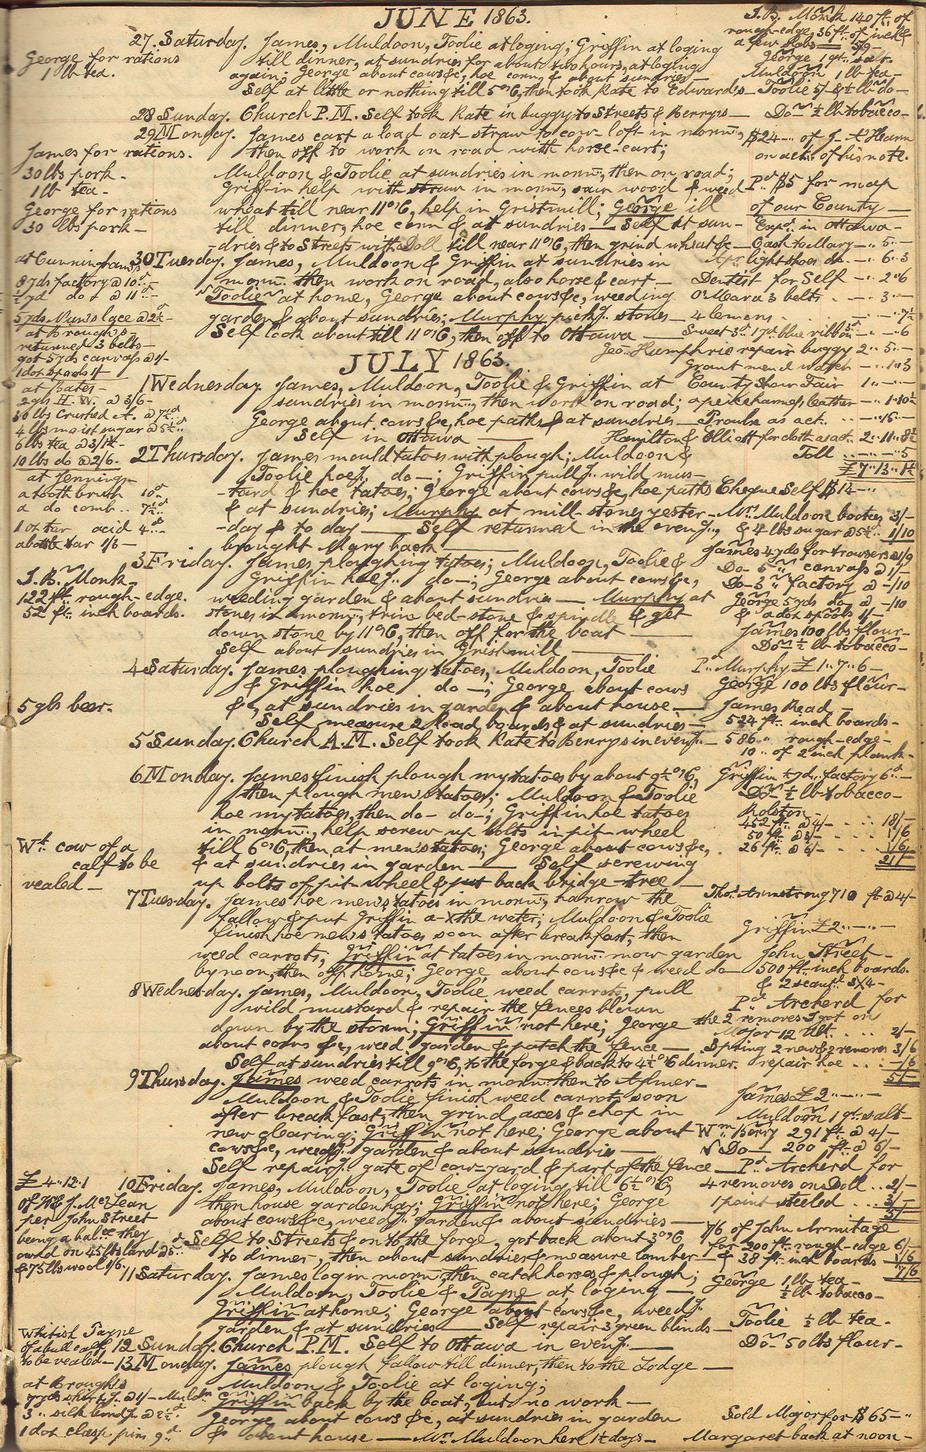 JUNE 1863.
27. Saturday. James, Muldoon, Toolie at loging; Griffin at loging
till dinner, at sundries for about two hours, at loging
again; George about cows &c, hoe corn, & about sundries —
Self at little or nothing till 5 o'C, then took Kate to Edwards —
George for rations
1 lb tea.
J. B. Monk 140 ft. of
rough-edge, 36 ft. of inch
a few slabs
George 1 qt. salt.
Muldoon 1 lb tea —
Toolie & ½ lb do —
Do ½ lb tobacco —
28 Sunday. Church P.M. Self took Kate in buggy to Streets & Berrys —
29 Monday. James cart a load oat straw to cow-loft in morn,
then off to work on road with horse-cart;
Muldoon & Toolie at sundries in morn, then on road;
Griffin help with straw in morn, saw wood & weed
wheat till near 11 o'C, help in Gristmill; George ill
till dinner, hoe corn & at sundries — Self at sun-
dries & to Streets with Doll till near 11 o'C, then grind wheat &c —
James for rations.
30 lbs pork —
1 lb tea —
George for rations
30 lbs pork —
$24 of J. Ahearn
on act. of his note.
Pd $5 for map
of our County —
Exps. in Ottawa —
Cash to Mary — 5 —
30 Tuesday. James, Muldoon & Griffin at sundries in
morn. then work on road, also horse & cart —
Toolie at home, George about cows &c, weeding
garden & about sundries; Murphy pickg. stones —
Self look about till 11 o'C, then off to Ottawa —
at Cunninghams
8 yds factory @ 10d
yd do @ 11d
5 yds Muns lace @
at Broughs —
returned 3 belts —
got 5 yds canvas @ 1/-
1 doz spools 1/
at Bates —
2 gls H. W. @ 3/6 —
30 lbs Crushed
4 lbs moist sugar
6 lbs tea @ 3/1½ —
10 lbs do @ 2/6.
at Jennings —
a tooth brush 10d
a do comb 7½d
1 oz tar acid 4d
about tar 1/6 —
light shoes do — 6 — 3
Dentist for Self — 2 — 6
O'Meara 3 belts — 3 —
4 lemons — 7½
Sweet 3d. 17d blue ribbon 3d — 6
Geo. Humphrie repair buggy 2 — 5 —
Grant mend — 1 — 3
County Show Fair 1 —
leather — 1 — 10½
Proulx as act. — 15 —
Hamilton & Elliott for cloth as act. 2 — 11 — 8½
Toll — 5
JULY 1863.
1 Wednesday. James, Muldoon, Toolie & Griffin at
sundries in morn, then work on road;
George about cows &c, hoe paths & at sundries —
Self in Ottawa —
2 Thursday. James mould tatoes with plough; Muldoon &
Toolie hoeg. do —; Griffin pullg. wild mus-
-tard & hoe tatoes; George about cows &c, hoe paths
& at sundries; Murphy at mill-stone yester-
-day & to day — Self returned in the eveng.,
brought Mary back —
Cheque Self $14 —
Mr. Muldoon bootes 3/-
& 4 lbs sugar @ 5½ 1/10
3 Friday. James ploughing tatoes; Muldoon, Toolie &
Griffin hoeg. do —; George about cows &c,
weeding garden & about sundries — Murphy at
stones in morn; trim bed-stone & spindle & get
down stone by 11 o'C, then off for the boat —
Self about sundries in Gristmill —
J. B. Monk
122 ft rough-edge.
52 ft. inch boards.
James 4 yds for trousers
Do 5 canvas @ 1/-
Do 3 factory @ -/10
George 5 yds do @ -/10
& a doz spools 1/-
James 100 lbs flour —
Do ½ lb tobacco —
4 Saturday. James ploughing tatoes, Muldoon, Toolie
& Griffin hoe do —; George about cows
&c, at sundries in garden & about house —
Self measure 2 load boards & at sundries —
5 gls beer.
Pd. Murphy £1 — 7 — 6 —
George 100 lbs flour —
James Read —
524 ft. inch boards —
586 rough-edge —
10 of 2 inch plank —
5 Sunday. Church A.M. Self took Kate to Berrys in eveng. —
6 Monday. James finish plough my tatoes by about 9½ o'C,
then plough mens tatoes; Muldoon & Toolie
hoe my tatoes, then do — do —; Griffin hoe tatoes
in morn, help screw up bolts in pit-wheel
till 6 o'C, then at mens tatoes; George about cows &c,
& at sundries in garden — Self screwing
up bolts of pit-wheel & put back bridge-tree —
Wt. cow of a
calf to be
vealed —
Griffin yd. factory 6d —
Do ½ lb tobacco —
Rolston
452 ft. @ 4/- 18/-
50 ft @ 1/6
26 ft @ 6/- 1/6
21/-
7 Tuesday. James hoe mens tatoes in morn, harrow the
fallow & put Griffin a-X the water; Muldoon & Toolie
finish hoe mens tatoes soon after breakfast, then
weed carrots; Griffin at tatoes in morn. mow garden
by noon, then off home; George about cows &c & weed do —
Thos. Armstrong 710 ft @ 4/-
Griffin £2 —
John Street
500 ft. inch boards.
& 2 scant. 3X4 —
8 Wednesday. James, Muldoon, Toolie weed carrots, pull
wild mustard & repair the fences blown
down by the storm; Griffin not here; George
about cows &c, weed garden & patch the fence —
Self at sundries till 9 o'C, to the forge & back to 4½ o'C dinner.
Pd Archerd for
the 2 removes I got on
Major 12 Ult. 2/-
Spring 2 new & removes 3/6
repair hoe -/6
9 Thursday. James weed carrots in morn. then to Aylmer —
Muldoon & Toolie finish weed carrots soon
after breakfast, then grind axes & chop in
new clearing; Griffin not here; George about
cows &c, weedg. garden & about sundries —
Self repairg. gate of cow-yard & part of the fence —
James £2 —
Muldoon 1 qt. salt —
Wm. Berry 291 ft @ 4/-
Do — 200 ft. @ 5/-
10 Friday. James, Muldoon, Toolie at loging till 6½ o'C,
then house garden hay; Griffin not here; George
about cows &c, weedg. garden & about sundries —
Self to Streets & on to the forge, got back about 3 o'C
to dinner, then about sundries & measure lumber —
£4 — 12 — 1
of H & J. McLean
per John Street
being a balce. they
owed on 45 lbs lard @ 5d
& 75 lbs wool 1/6.
Pd Archerd for
4 removes on Doll 2/-
1 point steeled 3/-
5/-
7/6 of John Armitage
for 200 ft. rough-edge 6/-
& 38 ft. inch boards 1/6
7/6
11 Saturday. James log in morn, then catch horses & plough;
Muldoon, Toolie & Payne at loging —
Griffin at home; George about cows &c, weedg.
garden & at sundries — Self repair 3 green blinds —
George 1 lb tea —
½ lb tobacco —
Toolie ½ lb tea —
Do 50 lbs flour —
12 Sunday. Church P.M. Self to Ottawa in eveng. —
Whitish Payne
of a bull calf
to be vealed —
13 Monday. James plough fallow till dinner, then to the Lodge —
Muldoon & Toolie at loging;
Griffin back by the boat, but no work —
George about cows &c, at sundries in garden
& about house — Mr. Muldoon here 1½ days —
at Broughs
3 silk
1 doz clasp pins 9d
Sold Major for $65 —
Margaret back at noon —